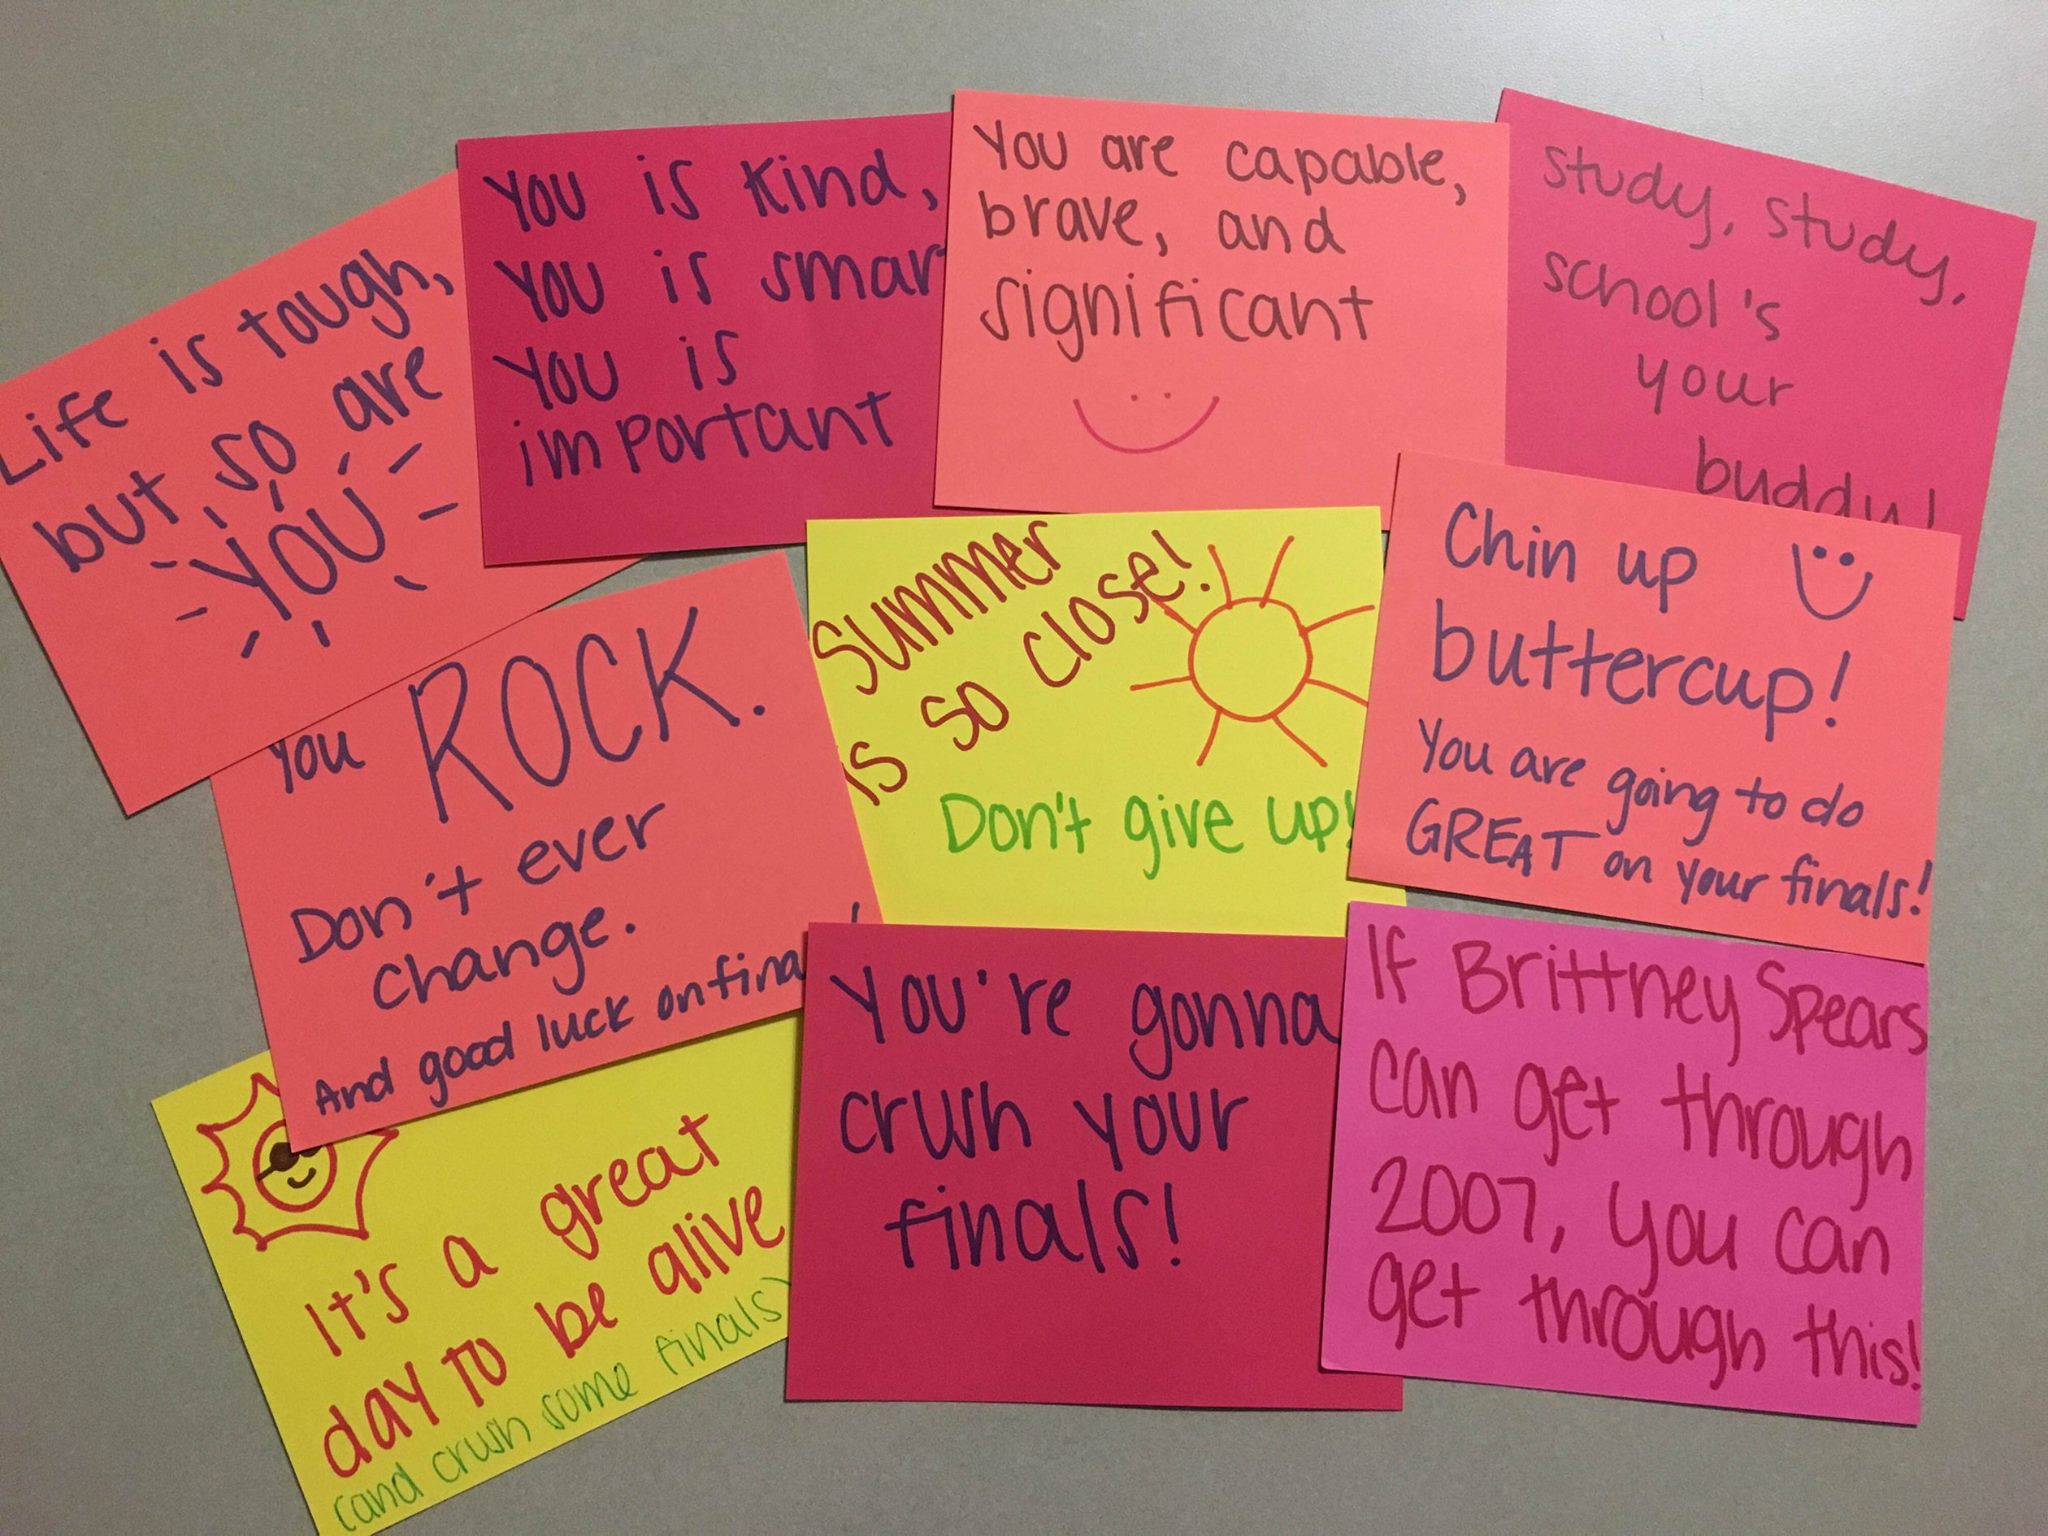 Life is tough,
but so are
YOU
You is kind,
You is smar
You is
important
You are capable,
brave, and
significant
study, study,
school's
your
buddy!
You ROCK.
Don't ever
change.
And good luck on fina
Summer
is so close!
Don't give up!
Chin up
buttercup!
You are going to do
GREAT on your finals!
It's a great
day to be alive
(and crush some finals)
You're gonna
crush your
finals!
If Brittney Spears
can get through
2007, you can
get through this!